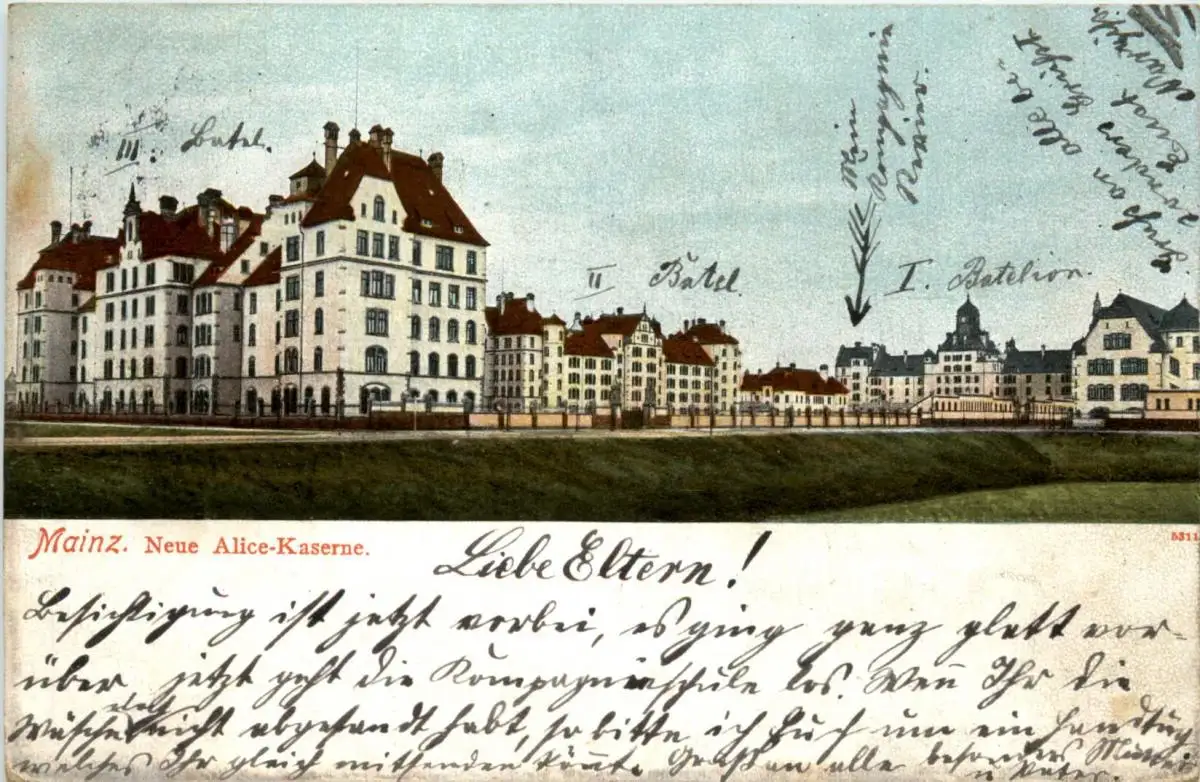 III Batel.
II Batel.
Mein
Kompagnie
Revier
I. Batelion.
alle
Gruß
besonders
Euch
Mainz. Neue Alice-Kaserne.
5311
Liebe Eltern!
Besichtigung ist jetzt vorbei, es ging ganz glatt vor-
über, jetzt geht die Kompagnieschule los. Wen̄ Ihr die
Wäsche noch nicht abgesandt habt, so bitte ich Euch um ein Handtuch
welches Ihr gleich mitsenden kön̄t. Gruß an alle besonders